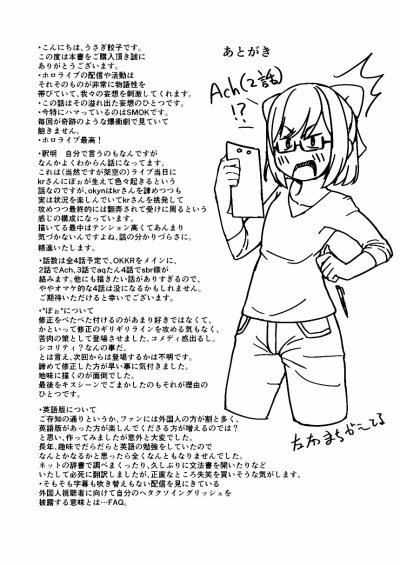 あとがき
・こんにちは、うさぎ餃子です。
この度は本書をご購入頂き誠に
ありがとうございます。
・ホロライブの配信や活動は
それそのものが非常に物語性を
帯びていて、我々の妄想を刺激してくれます。
・この話はその溢れ出た妄想のひとつです。
・今特にハマっているのはSMOKです。
毎回が奇跡のような爆衝劇で見ていて
飽きません。
・ホロライブ最高！
・釈明　自分で言うのもなんですが
なんかよくわからん話になってます。
これは(当然ですが架空の)ライブ当日に
krさんにぼぉが生えて色々起きるという
話なのですが、okynはkrさんを諫めつつも
実は状況を楽しんでいてkrさんを挑発して
攻めつつ最終的には翻弄されて受けに周るという
感じの構成になっています。
描いてる最中はテンション高くてあんまり
気づかないんですよね、話の分かりづらさに。
精進いたします。
・話数は全4話予定で、OKKRをメインに、
2話でAch、3話でaqたん4話でsbr様が
絡みます。他にも描きたい話がありすぎるので、
ややオマケ的な4話は没になるかもしれません。
ご期待いただけると幸いでございます。
・"ぼぉ"について
修正をべたべた付けるのがあまり好きではなくて、
かといって修正のギリギリラインを攻める気もなく、
苦肉の策として登場させました、コメディ感出るし。
シコリティ？なんの事だ。
とは言え、次回からは登場するかは不明です。
諦めて修正した方が早い事に気付きました。
地味に描くのが面倒でした。
最後をキスシーンでごまかしたのもそれが理由の
ひとつです。
・英語版について
ご存知の通りというか、ファンには外国人の方が割と多く、
英語版があった方が楽しんでくださる方が増えるのでは？
と思い、作ってみましたが意外と大変でした。
長年、趣味でだらだらと英語の勉強をしていたので
なんとかなるかと思ったら全くなんともなりませんでした。
ネットの辞書で調べまくったり、久しぶりに文法書を開いたりなど
いたして必死に翻訳しましたが、正直なところ失笑を買いそうな気がします。
・そもそも字幕も吹き替えもない配信を見にきている
外国人視聴者に向けて自分のヘタクソイングリッシュを
披露する意味とは…FAQ。
Ach(2話)
!?
たわまちがえてる